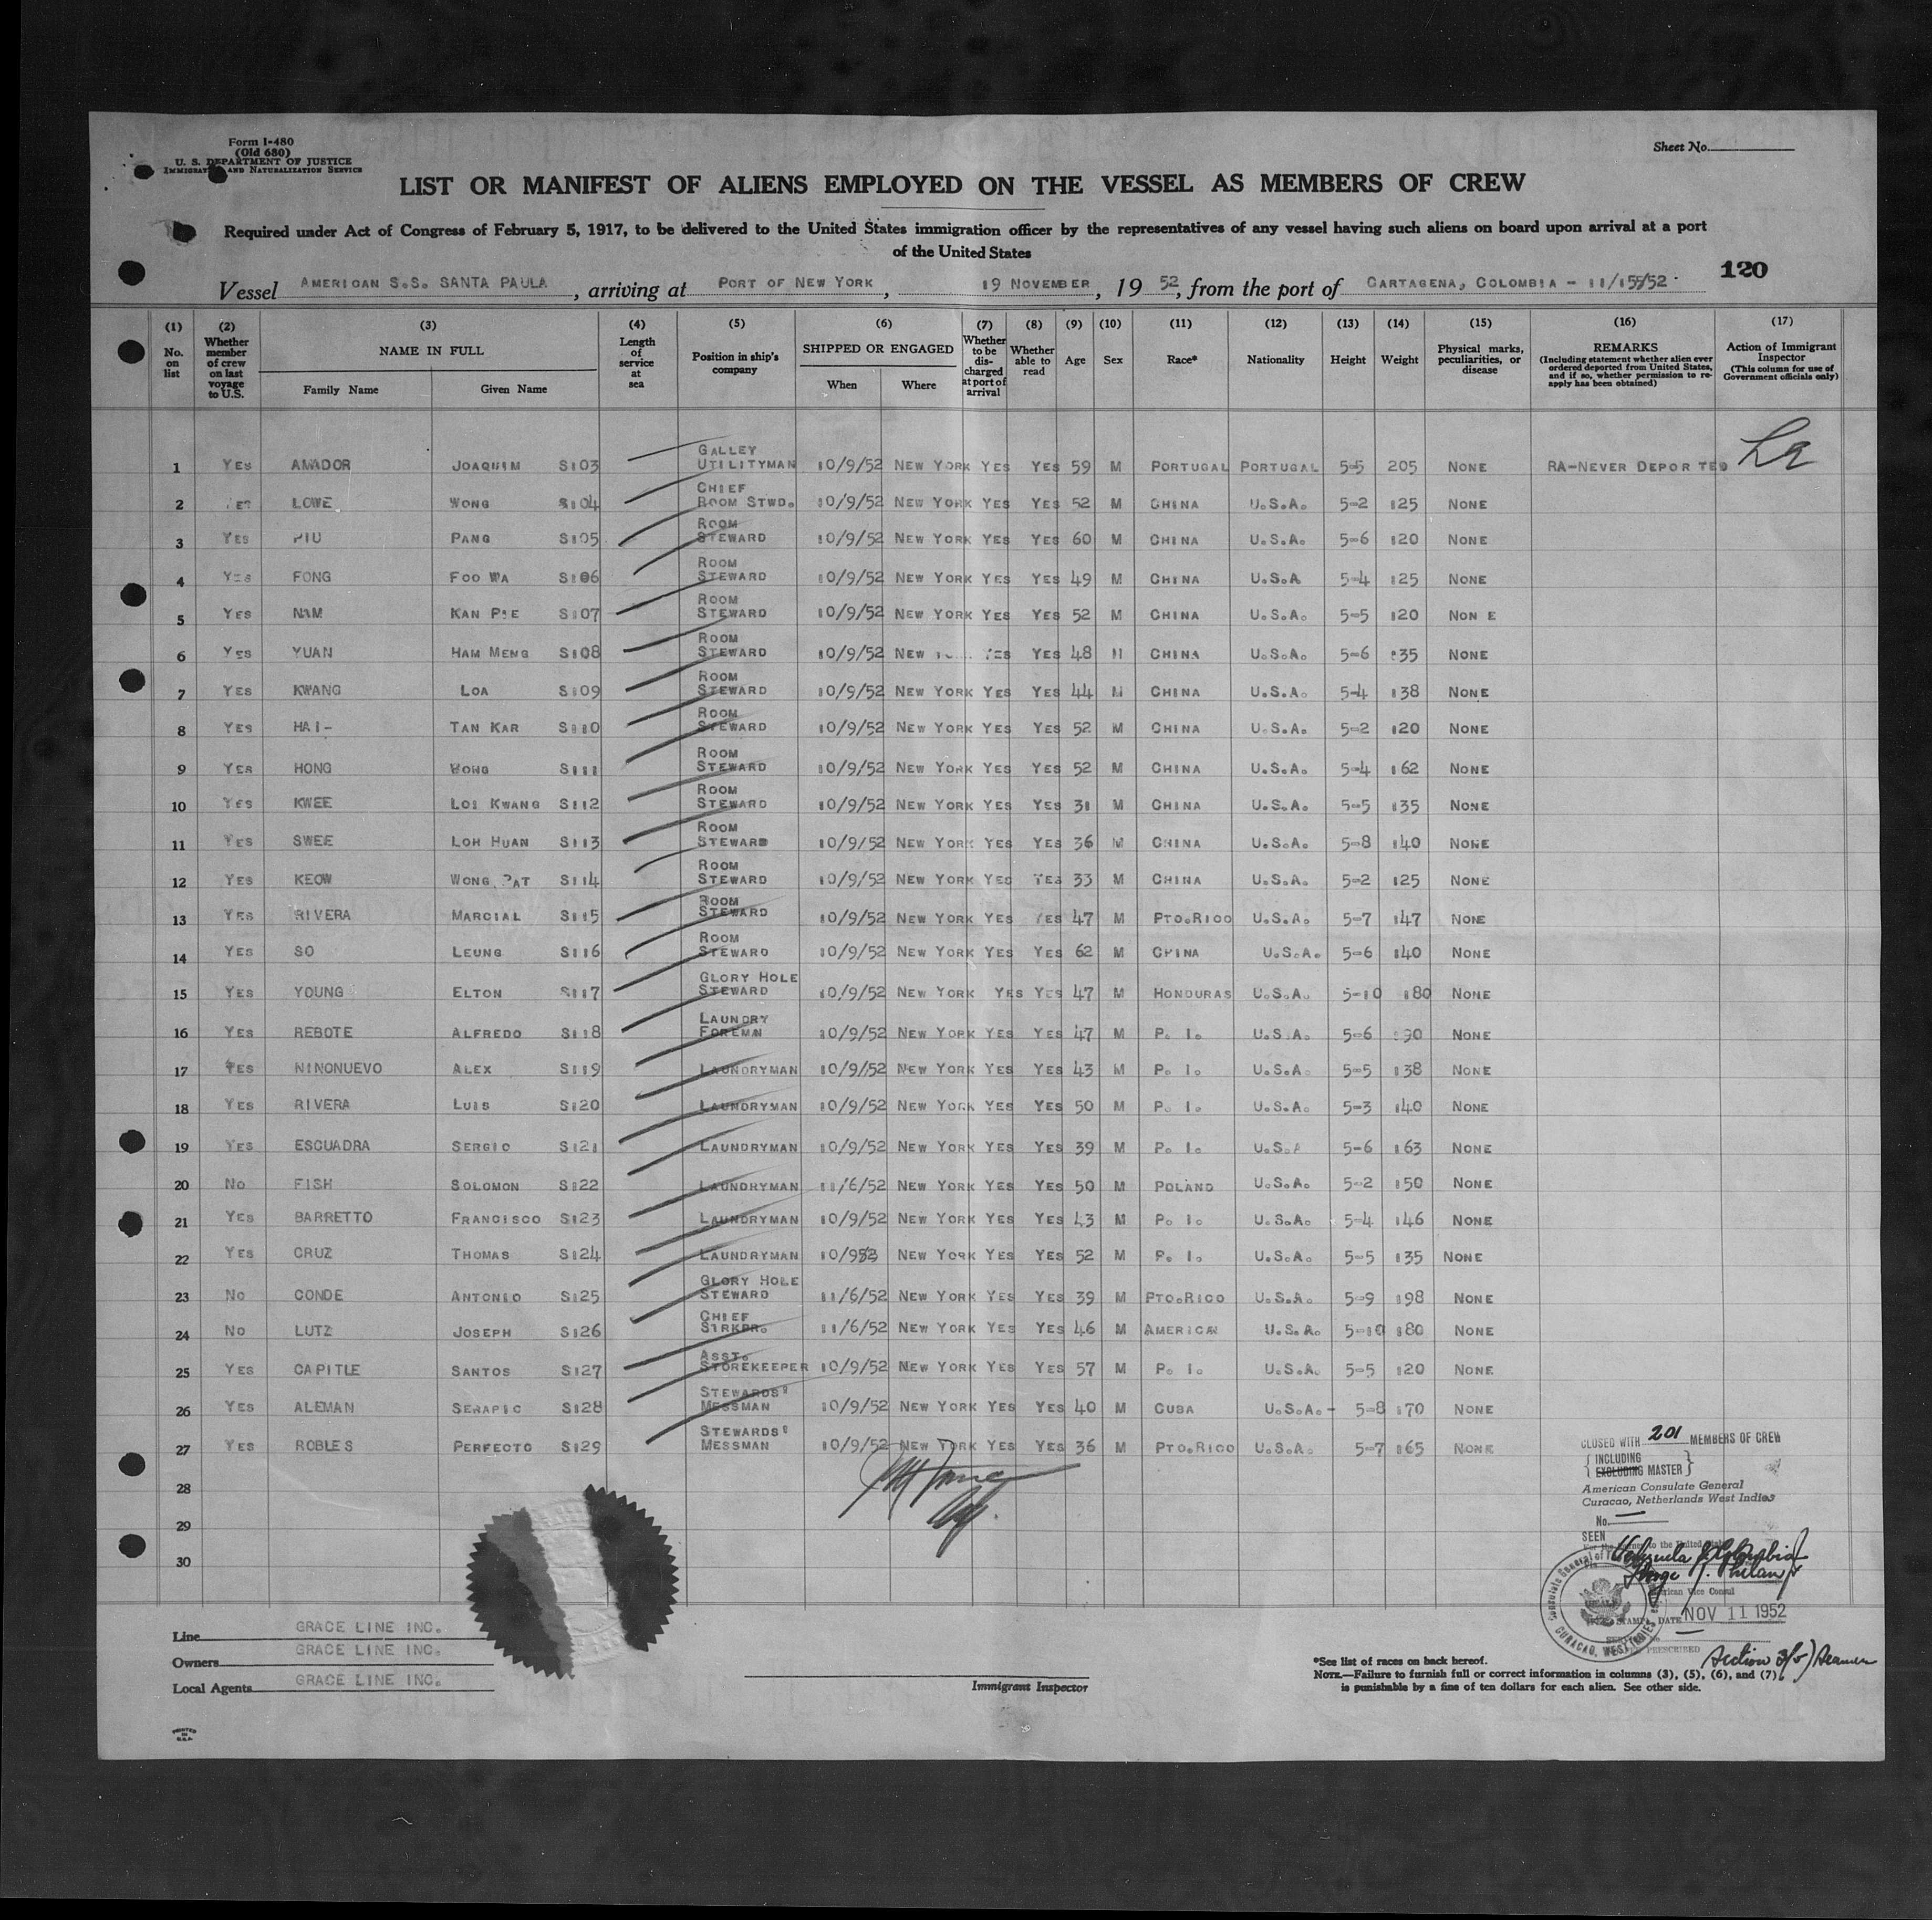 Form I-480
(Old 680)
U. S. DEPARTMENT OF JUSTICE
IMMIGRATION AND NATURALIZATION SERVICE
Sheet No.
LIST OR MANIFEST OF ALIENS EMPLOYED ON THE VESSEL AS MEMBERS OF CREW
Required under Act of Congress of February 5, 1917, to be delivered to the United States immigration officer by the representatives of any vessel having such aliens on board upon arrival at a port
of the United States
120
Vessel AMERICAN S.S. SANTA PAULA, arriving at PORT OF NEW YORK, 19 NOVEMBER, 19 52, from the port of CARTAGENA, COLOMBIA - 11/15/52
(1) No. on list (2) Whether member of crew on last voyage to U.S. (3) NAME IN FULL Family Name Given Name (4) Length of service at sea (5) Position in ship's company (6) SHIPPED OR ENGAGED When Where (7) Whether to be discharged at port of arrival (8) Whether able to read (9) Age (10) Sex (11) Race* (12) Nationality (13) Height (14) Weight (15) Physical marks, peculiarities, or disease (16) REMARKS (Including statement whether alien ever ordered deported from United States, and if so, whether permission to reapply has been obtained) (17) Action of Immigrant Inspector (This column for use of Government officials only)
1 YES AMADOR JOAQUIM S103 GALLEY UTILITYMAN 10/9/52 NEW YORK YES YES 59 M PORTUGAL PORTUGAL 5-5 205 NONE RA-NEVER DEPORTED
2 YES LOWE WONG S104 CHIEF ROOM STWD. 10/9/52 NEW YORK YES YES 52 M CHINA U.S.A. 5-2 125 NONE
3 YES PIU PANG S105 ROOM STEWARD 10/9/52 NEW YORK YES YES 60 M CHINA U.S.A. 5-6 120 NONE
4 YES FONG FOO WA S106 ROOM STEWARD 10/9/52 NEW YORK YES YES 49 M CHINA U.S.A 5-4 125 NONE
5 YES NAM KAN S107 ROOM STEWARD 10/9/52 NEW YORK YES YES 52 M CHINA U.S.A. 5-5 120 NON E
6 YES YUAN HAM MENG S108 ROOM STEWARD 10/9/52 NEW YES YES 48 M CHINA U.S.A. 5-6 135 NONE
7 YES KWANG LOA S109 ROOM STEWARD 10/9/52 NEW YORK YES YES 44 M CHINA U.S.A. 5-4 138 NONE
8 YES HAI- TAN KAR S110 ROOM STEWARD 10/9/52 NEW YORK YES YES 52 M CHINA U.S.A. 5-2 120 NONE
9 YES HONG WONG S111 ROOM STEWARD 10/9/52 NEW YORK YES YES 52 M CHINA U.S.A. 5-4 162 NONE
10 YES KWEE LOI KWANG S112 ROOM STEWARD 10/9/52 NEW YORK YES YES 31 M CHINA U.S.A. 5-5 135 NONE
11 YES SWEE LOH HUAN S113 ROOM STEWARD 10/9/52 NEW YORK YES YES 36 M CHINA U.S.A. 5-8 140 NONE
12 YES KEOW WONG PAT S114 ROOM STEWARD 10/9/52 NEW YORK YES YES 33 M CHINA U.S.A. 5-2 125 NONE
13 YES RIVERA MARCIAL S115 ROOM STEWARD 10/9/52 NEW YORK YES YES 47 M PTO.RICO U.S.A. 5-7 147 NONE
14 YES SO LEUNG S116 ROOM STEWARD 10/9/52 NEW YORK YES YES 62 M CHINA U.S.A. 5-6 140 NONE
15 YES YOUNG ELTON S117 GLORY HOLE STEWARD 10/9/52 NEW YORK YES YES 47 M HONDURAS U.S.A. 5-10 180 NONE
16 YES REBOTE ALFREDO S118 LAUNDRY FOREMAN 10/9/52 NEW YORK YES YES 47 M P. I. U.S.A. 5-6 190 NONE
17 YES NINONUEVO ALEX S119 LAUNDRYMAN 10/9/52 NEW YORK YES YES 43 M P. I. U.S.A. 5-5 138 NONE
18 YES RIVERA LUIS S120 LAUNDRYMAN 10/9/52 NEW YORK YES YES 50 M P. I. U.S.A. 5-3 140 NONE
19 YES ESCUADRA SERGIO S121 LAUNDRYMAN 10/9/52 NEW YORK YES YES 39 M P. I. U.S.A 5-6 163 NONE
20 NO FISH SOLOMON S122 LAUNDRYMAN 11/6/52 NEW YORK YES YES 50 M POLAND U.S.A. 5-2 150 NONE
21 YES BARRETTO FRANCISCO S123 LAUNDRYMAN 10/9/52 NEW YORK YES YES 43 M P. I. U.S.A. 5-4 146 NONE
22 YES CRUZ THOMAS S124 LAUNDRYMAN 10/952 NEW YORK YES YES 52 M P. I. U.S.A. 5-5 135 NONE
23 NO CONDE ANTONIO S125 GLORY HOLE STEWARD 11/6/52 NEW YORK YES YES 39 M PTO.RICO U.S.A. 5-9 198 NONE
24 NO LUTZ JOSEPH S126 CHIEF STRKPR. 11/6/52 NEW YORK YES YES 46 M AMERICAN U.S.A. 5-10 180 NONE
25 YES CAPITLE SANTOS S127 ASST. STOREKEEPER 10/9/52 NEW YORK YES YES 57 M P. I. U.S.A. 5-5 120 NONE
26 YES ALEMAN SERAPIO S128 STEWARDS' MESSMAN 10/9/52 NEW YORK YES YES 40 M CUBA U.S.A.- 5-8 170 NONE
27 YES ROBLES PERFECTO S129 STEWARDS' MESSMAN 10/9/52 NEW YORK YES YES 36 M PTO.RICO U.S.A. 5-7 165 NONE
28
29
30
CLOSED WITH 201 MEMBERS OF CREW
INCLUDING
EXCLUDING MASTER
American Consulate General
Curacao, Netherlands West Indies
No.
SEEN
For the journey to the United States
Venezuela & Colombia
American Vice Consul
DATE NOV 11 1952
PRESCRIBED
CURACAO, WEST INDIES
Line GRACE LINE INC.
Owners GRACE LINE INC.
Local Agents GRACE LINE INC.
Immigrant Inspector
*See list of races on back hereof.
NOTE.—Failure to furnish full or correct information in columns (3), (5), (6), and (7)
is punishable by a fine of ten dollars for each alien. See other side.
PRINTED
IN
U.S.A.